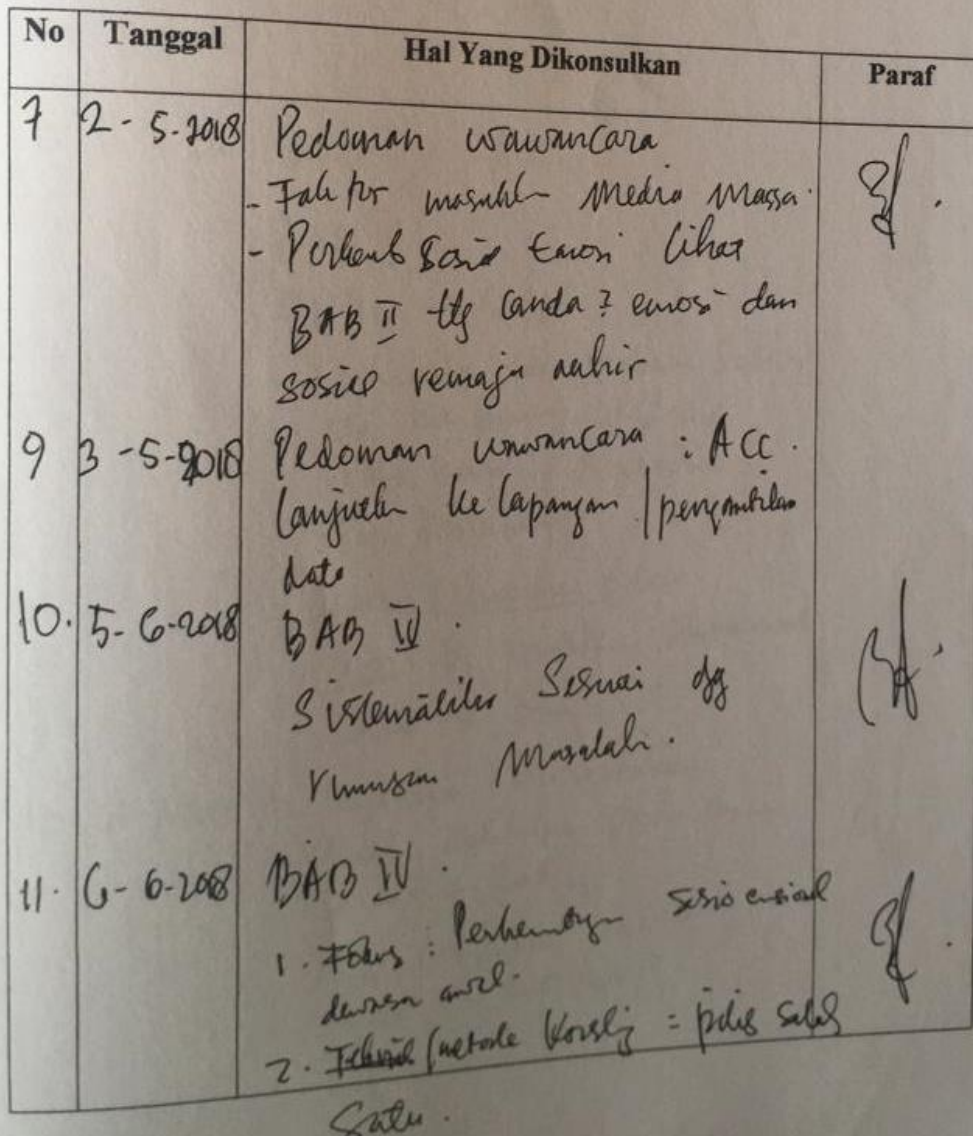 No Tanggal Hal Yang Dikonsulkan Paraf
7 2-5-2018 Pedoman wawancara
- Faktor masalah Media Massa.
- Perkemb Sosio Emosi lihat
BAB II ttg tanda2 emosi dan
sosial remaja akhir
9 3-5-2018 Pedoman wawancara : ACC.
lanjutkan ke lapangan / pengambilan
data
10. 5-6-2018 BAB IV.
Sistematika Sesuai dg
rumusan Masalah.
11. 6-6-2018 BAB IV.
1. Fokus : Perkembangan sosio emosional
dewasa awal.
2. Teknik / metode = pilih salah
Satu.